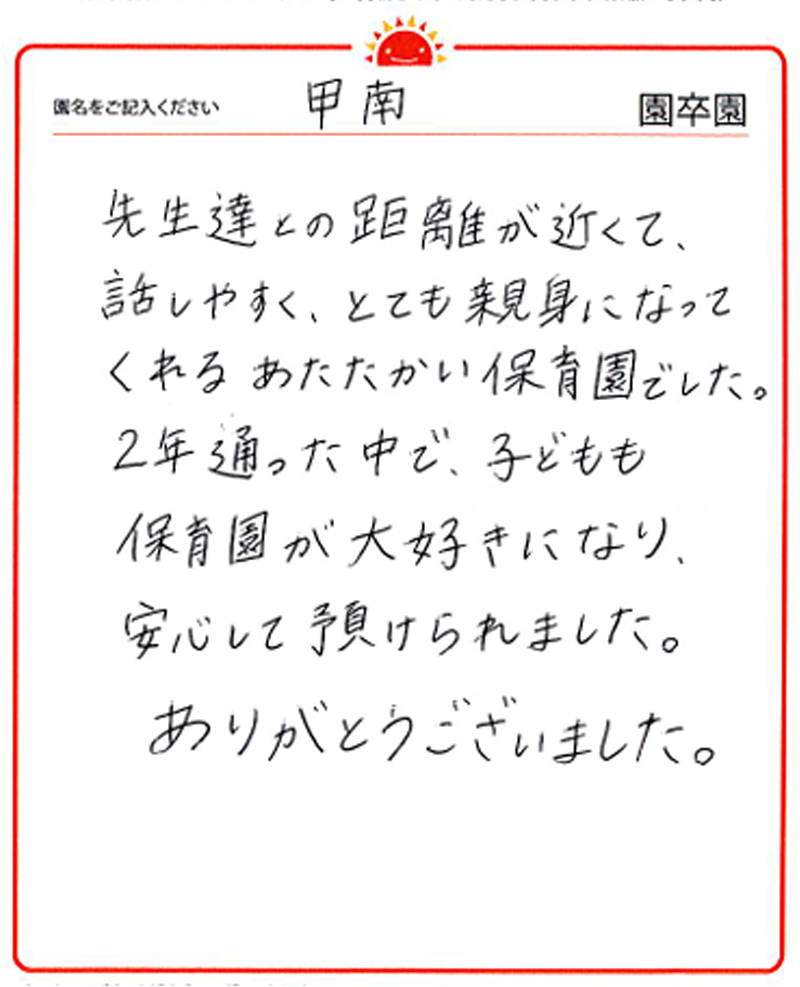 園名をご記入ください 甲南 園卒園
先生達との距離が近くて、
話しやすく、とても親身になって
くれるあたたかい保育園でした。
2年通った中で、子どもも
保育園が大好きになり、
安心して預けられました。
ありがとうございました。